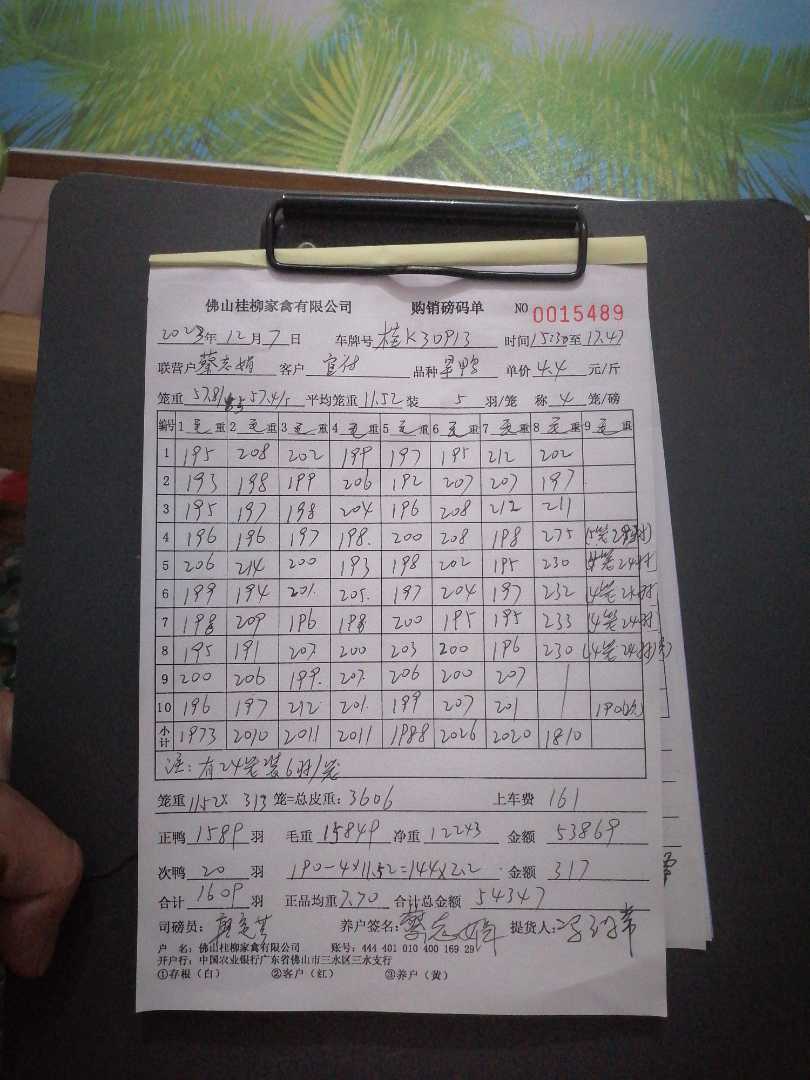 佛山桂柳家禽有限公司 购销磅码单 NO 0015489
2023年12月7日 车牌号 桂K30913 时间15:30至17:47
联营户 蔡志娟 客户 品种 单价 4.4 元/斤
笼重 57.8/5 57.4/5 平均笼重 11.52 装 5 羽/笼 称 4 笼/磅
编号 1毛重 2毛重 3毛重 4毛重 5毛重 6毛重 7毛重 8毛重 9毛重
1 195 208 202 199 197 195 212 202
2 193 198 199 206 192 207 207 197
3 195 197 198 204 196 208 212 211
4 196 196 197 198. 200 208 198 275
5 206 214 200 193 198 202 195 230 4笼24只
6 199 194 201. 205. 197 204 197 232 4笼24只
7 198 209 196 198 200 195 195 233 4笼24只
8 195 191 207 200 203 200 196 230 4笼24只
9 200 206 199. 207. 206 200 207
10 196 197 212 201. 199 207 201 190(次)
小计 1973 2010 2011 2011 1988 2026 2020 1810
注：有24笼装6只/笼
笼重 11.52X 313 笼=总皮重：3606 上车费 161
正鸭 1589 羽 毛重 15849 净重 12243 金额 53869
次鸭 20 羽 190-4×11.52=144×2.2 金额 317
合计 1609 羽 正品均重 7.70 合计总金额 54347
司磅员： 养户签名：蔡志娟 提货人：
户 名：佛山桂柳家禽有限公司 账号：444 401 010 400 169 29
开户行：中国农业银行广东省佛山市三水区三水支行
①存根（白） ②客户（红） ③养户（黄）